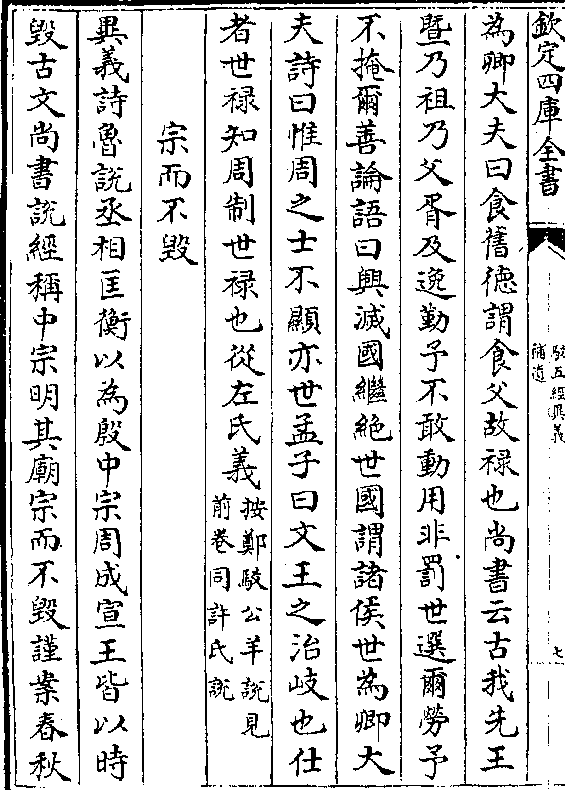 欽定四庫全書
駁五經異義
補遺
七
為卿大夫曰食舊徳謂食父故禄也尚書云古我先王
暨乃祖乃父胥及逸勤予不敢動用非罰世選爾勞予
不掩爾善論語曰興滅國繼絶世國謂諸侯世為卿大
夫詩曰惟周之士不顯亦世孟子曰文王之治岐也仕
者世禄知周制世禄也從左氏義按鄭駁公羊說見
前卷同許氏說
宗而不毀
異義詩魯說丞相匡衡以為殷中宗周成宣王皆以時
毀古文尚書說經稱中宗明其廟宗而不毀謹案春秋